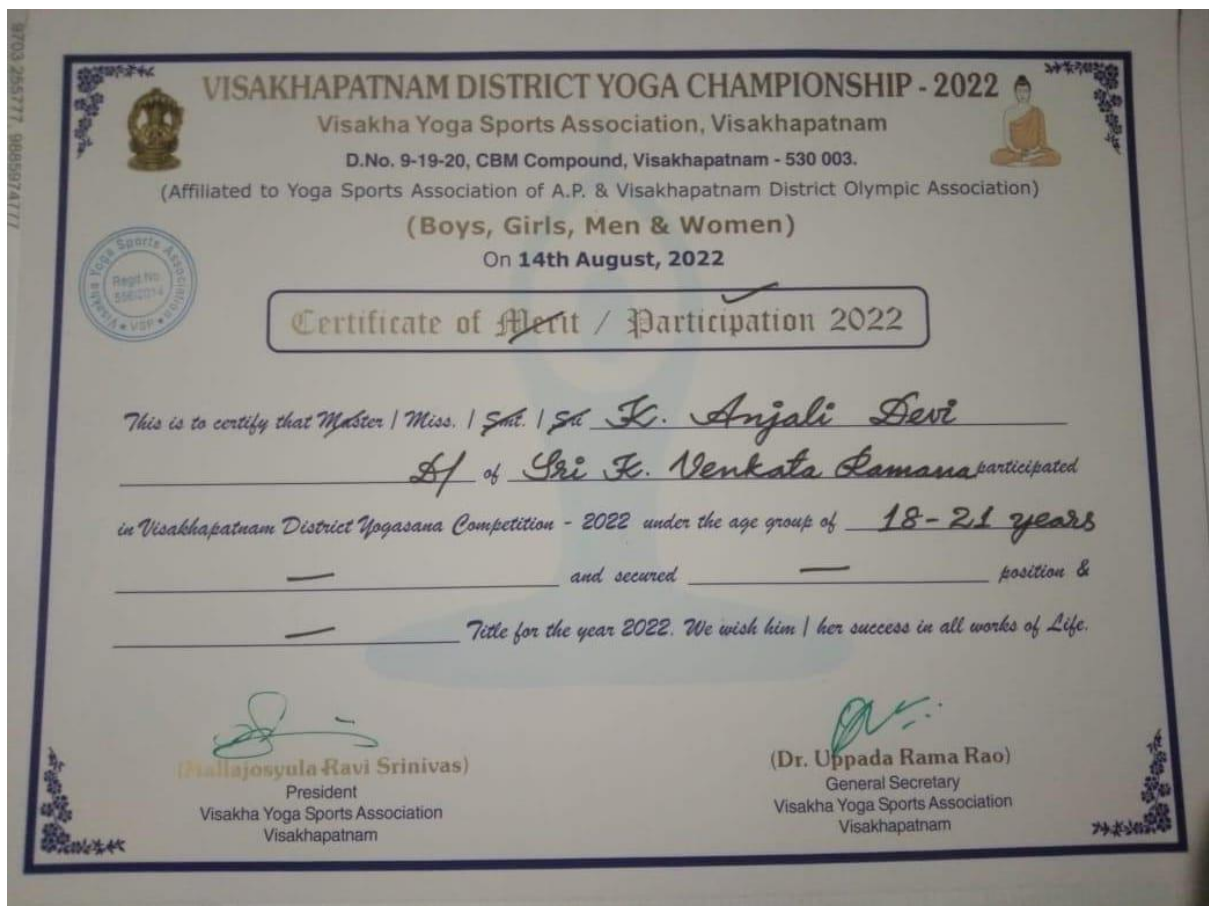 VISAKHAPATNAM DISTRICT YOGA CHAMPIONSHIP - 2022
Visakha Yoga Sports Association, Visakhapatnam
D.No. 9-19-20, CBM Compound, Visakhapatnam - 530 003.
(Affiliated to Yoga Sports Association of A.P. & Visakhapatnam District Olympic Association)
(Boys, Girls, Men & Women)
On 14th August, 2022
Visakha Yoga Sports Association
Regd.No
VSP
Certificate of Merit / Participation 2022
This is to certify that Master / Miss. / Smt. / Sri K. Anjali Devi
D/ of Sri K. Venkata Ramana participated
in Visakhapatnam District Yogasana Competition - 2022 under the age group of 18-21 years
— and secured — position &
— Title for the year 2022. We wish him / her success in all works of Life.
(Mallajosyula Ravi Srinivas)
President
Visakha Yoga Sports Association
Visakhapatnam
(Dr. Uppada Rama Rao)
General Secretary
Visakha Yoga Sports Association
Visakhapatnam
9703 255777, 9885974777